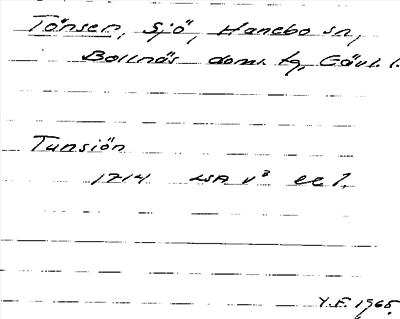 Tönsen, Sjö, Hanebo sn,
Bollnäs doms. tg, Gävl. l.
Tunsiön
1714 LSA V³ ee 1.
Y.F. 1965.